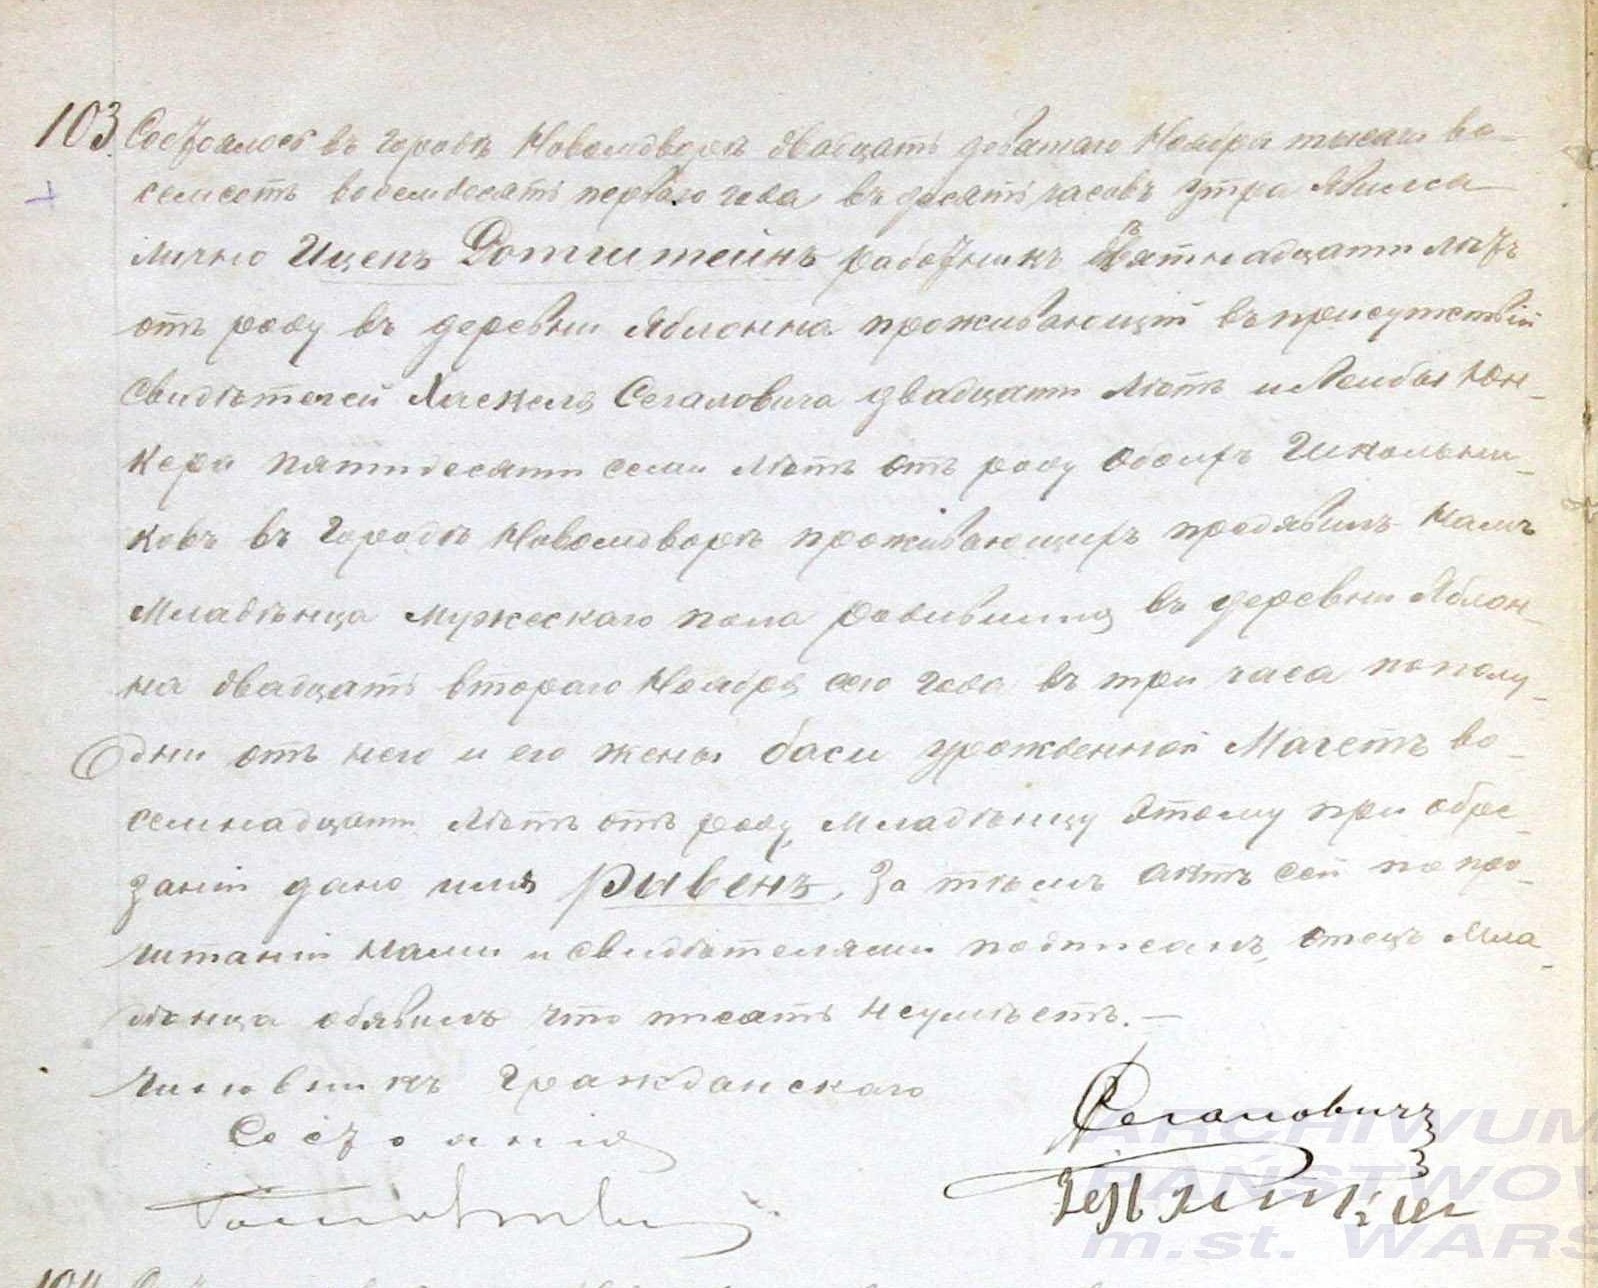 103 Состоялось въ городѣ Новомдворѣ двадцать девятаго Ноября тысяча во-
семсотъ восемдесятъ перваго года въ десять часовъ утра явился
лично Ицекъ Ротштейнъ работникъ девятнадцати лѣтъ
отъ роду въ деревни Яблонна проживающій въ присутствіи
свидѣтелей Хаскеля Сегаловича двадцати лѣтъ и Лейбы Юн-
кера пятидесяти семи лѣтъ отъ роду обоихъ Школьни-
ковъ въ городѣ Новомдворѣ проживающихъ предявилъ намъ
младѣнца мужескаго пола родившися въ деревни Яблон-
на двадцать втораго Ноября сего года въ три часа пополу-
дни отъ него и его жены Баси урожденной Магетъ во-
семнадцати лѣтъ отъ роду, младѣнцу этому при обре-
заніи дано имя Рывенъ, За тѣмъ актъ сей по про-
читаніи нами и свидѣтелями подписанъ, отецъ мла-
дѣнца обявилъ что писать неумѣетъ.—
Чиновникъ Гражданскаго
Состоянія
Сегаловичъ
ARCHIWUM
PAŃSTWOW
m.st. WARS
104